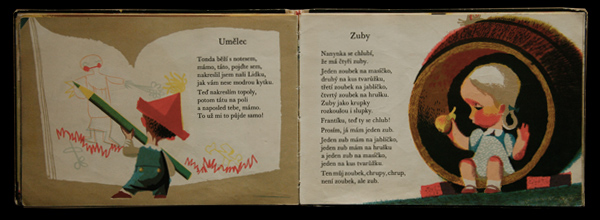 Umělec
Tonda běží s notesem,
mámo, táto, pojďte sem,
nakreslil jsem naši Lidku,
jak vám nese modrou kytku.
Teď nakreslím topoly,
potom tátu na poli
a naposled tebe, mámo.
To už mi to půjde samo!
Zuby
Nanynka se chlubí,
že má čtyři zuby.
Jeden zoubek na masíčko,
druhý na kus tvarůžku,
třetí zoubek na jablíčko,
čtvrtý zoubek na hrušku.
Zuby jako kropky
rozkoušou i slupky.
Františku, teď ty se chlub!
Prosím, já mám jeden zub.
Jeden zub mám na jablíčko,
jeden zub mám na hrušku
a jeden zub na masíčko,
jeden na kus tvarůžku.
Ten můj zoubek, chrupy, chrup,
není zoubek, ale zub.